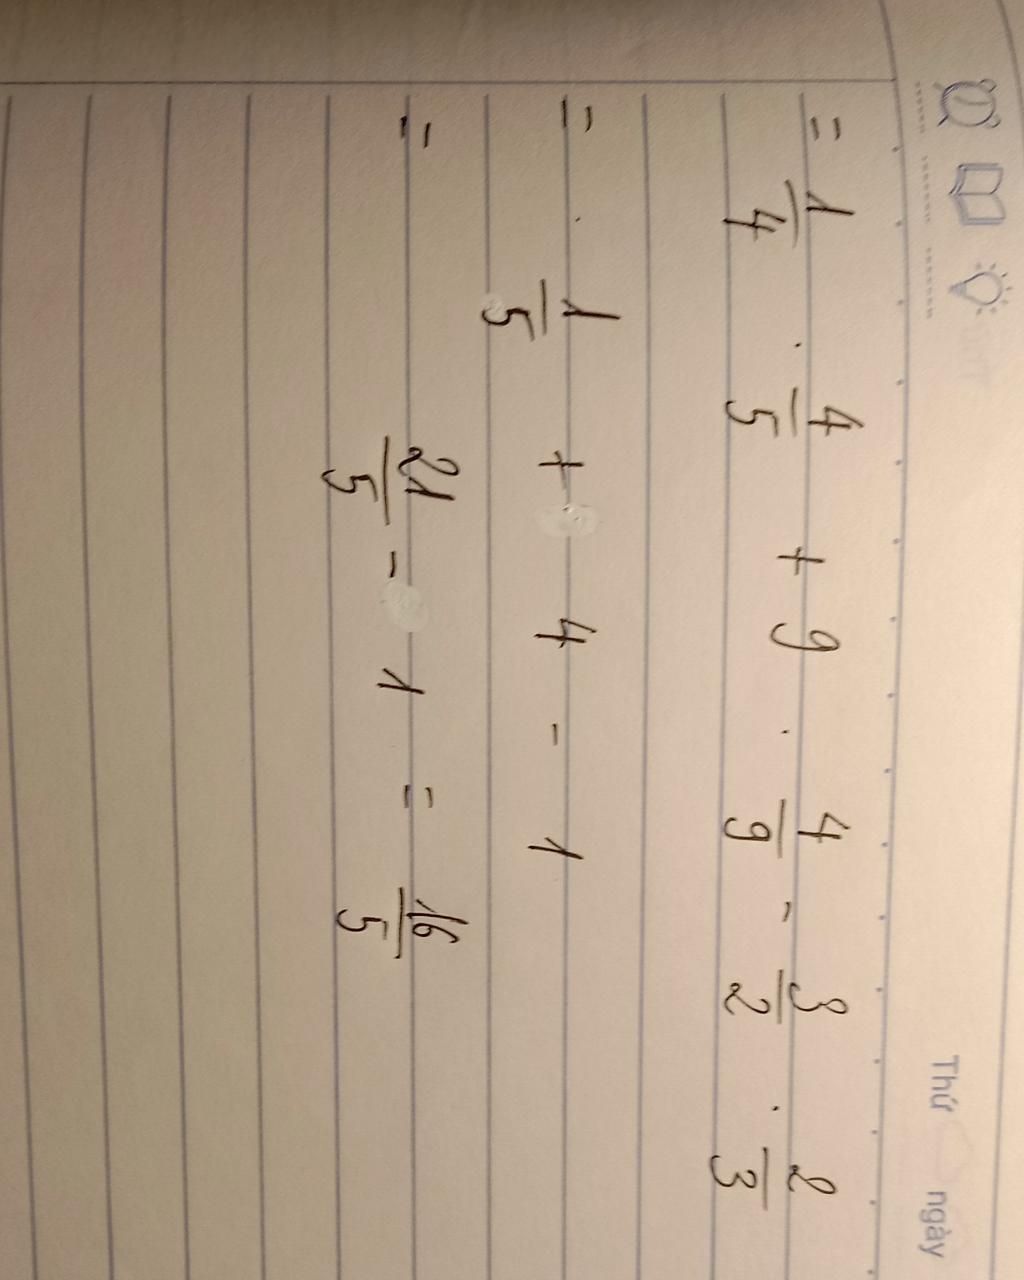 Thứ ngày
= 1/4 . 4/5 + 9 . 4/9 - 3/2 . 2/3
= 1/5 + 4 - 1
= 21/5 - 1 = 16/5